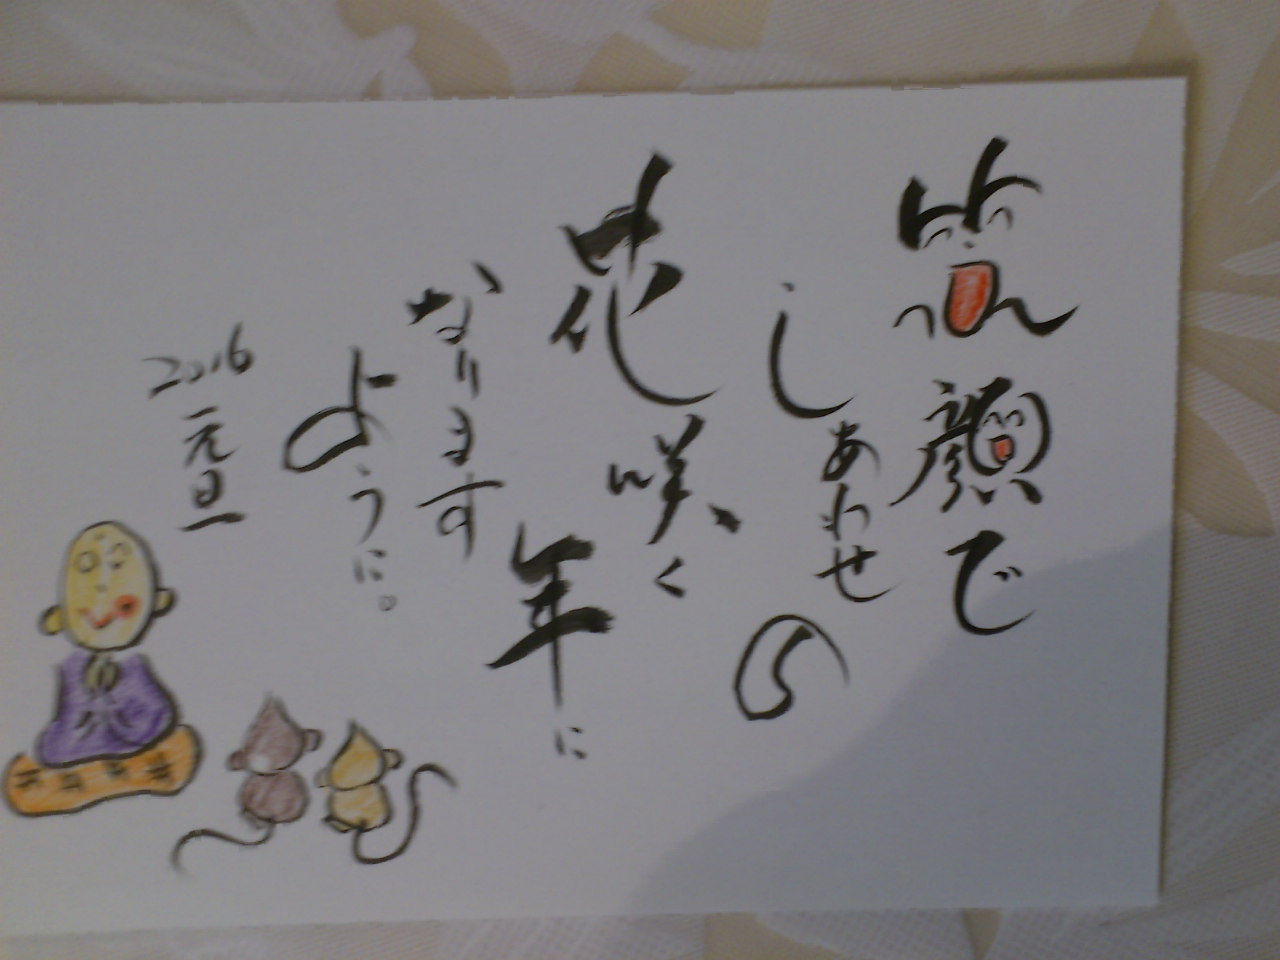 笑顔で
しあわせの
花咲く
年に
なります
ように。
2016
元旦